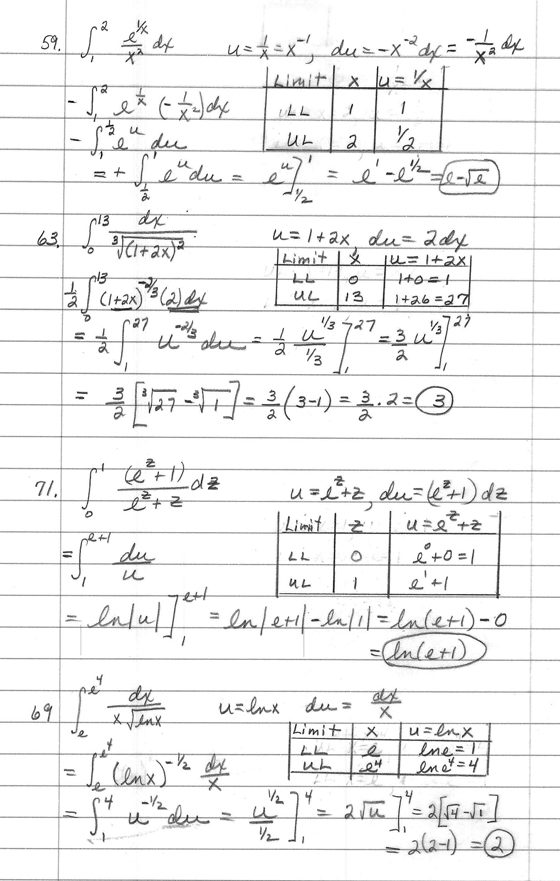 59. ∫₁² e^(1/x)/x² dx   u = 1/x = x⁻¹, du = -x⁻² dx = -1/x² dx
Limit | x | u = 1/x
- ∫₁² e^(1/x) (-1/x²) dx   LL | 1 | 1
- ∫₁^(1/2) e^u du   UL | 2 | 1/2
= + ∫_(1/2)^1 e^u du = e^u]_(1/2)^1 = e¹ - e^(1/2) = e - √e
63. ∫₀¹³ dx/∛((1+2x)²)   u = 1+2x, du = 2dx
Limit | x | u = 1+2x
LL | 0 | 1+0=1
1/2 ∫₀¹³ (1+2x)^(-2/3) (2) dx   UL | 13 | 1+26=27
= 1/2 ∫₁²⁷ u^(-2/3) du = 1/2 u^(1/3)/(1/3)]₁²⁷ = 3/2 u^(1/3)]₁²⁷
= 3/2 [∛27 - ∛1] = 3/2 (3-1) = 3/2 · 2 = 3
71. ∫₀¹ (e^z + 1)/(e^z + z) dz   u = e^z + z, du = (e^z + 1) dz
Limit | z | u = e^z + z
= ∫₁^(e+1) du/u   LL | 0 | e⁰+0=1
UL | 1 | e¹+1
= ln|u|]₁^(e+1) = ln|e+1| - ln|1| = ln(e+1) - 0
= ln(e+1)
69 ∫_e^(e⁴) dx/(x√(lnx))   u = lnx   du = dx/x
Limit | x | u = lnx
LL | e | lne = 1
= ∫_e^(e⁴) (lnx)^(-1/2) dx/x   UL | e⁴ | lne⁴ = 4
= ∫₁⁴ u^(-1/2) du = u^(1/2)/(1/2)]₁⁴ = 2√u]₁⁴ = 2[√4 - √1]
= 2(2-1) = 2